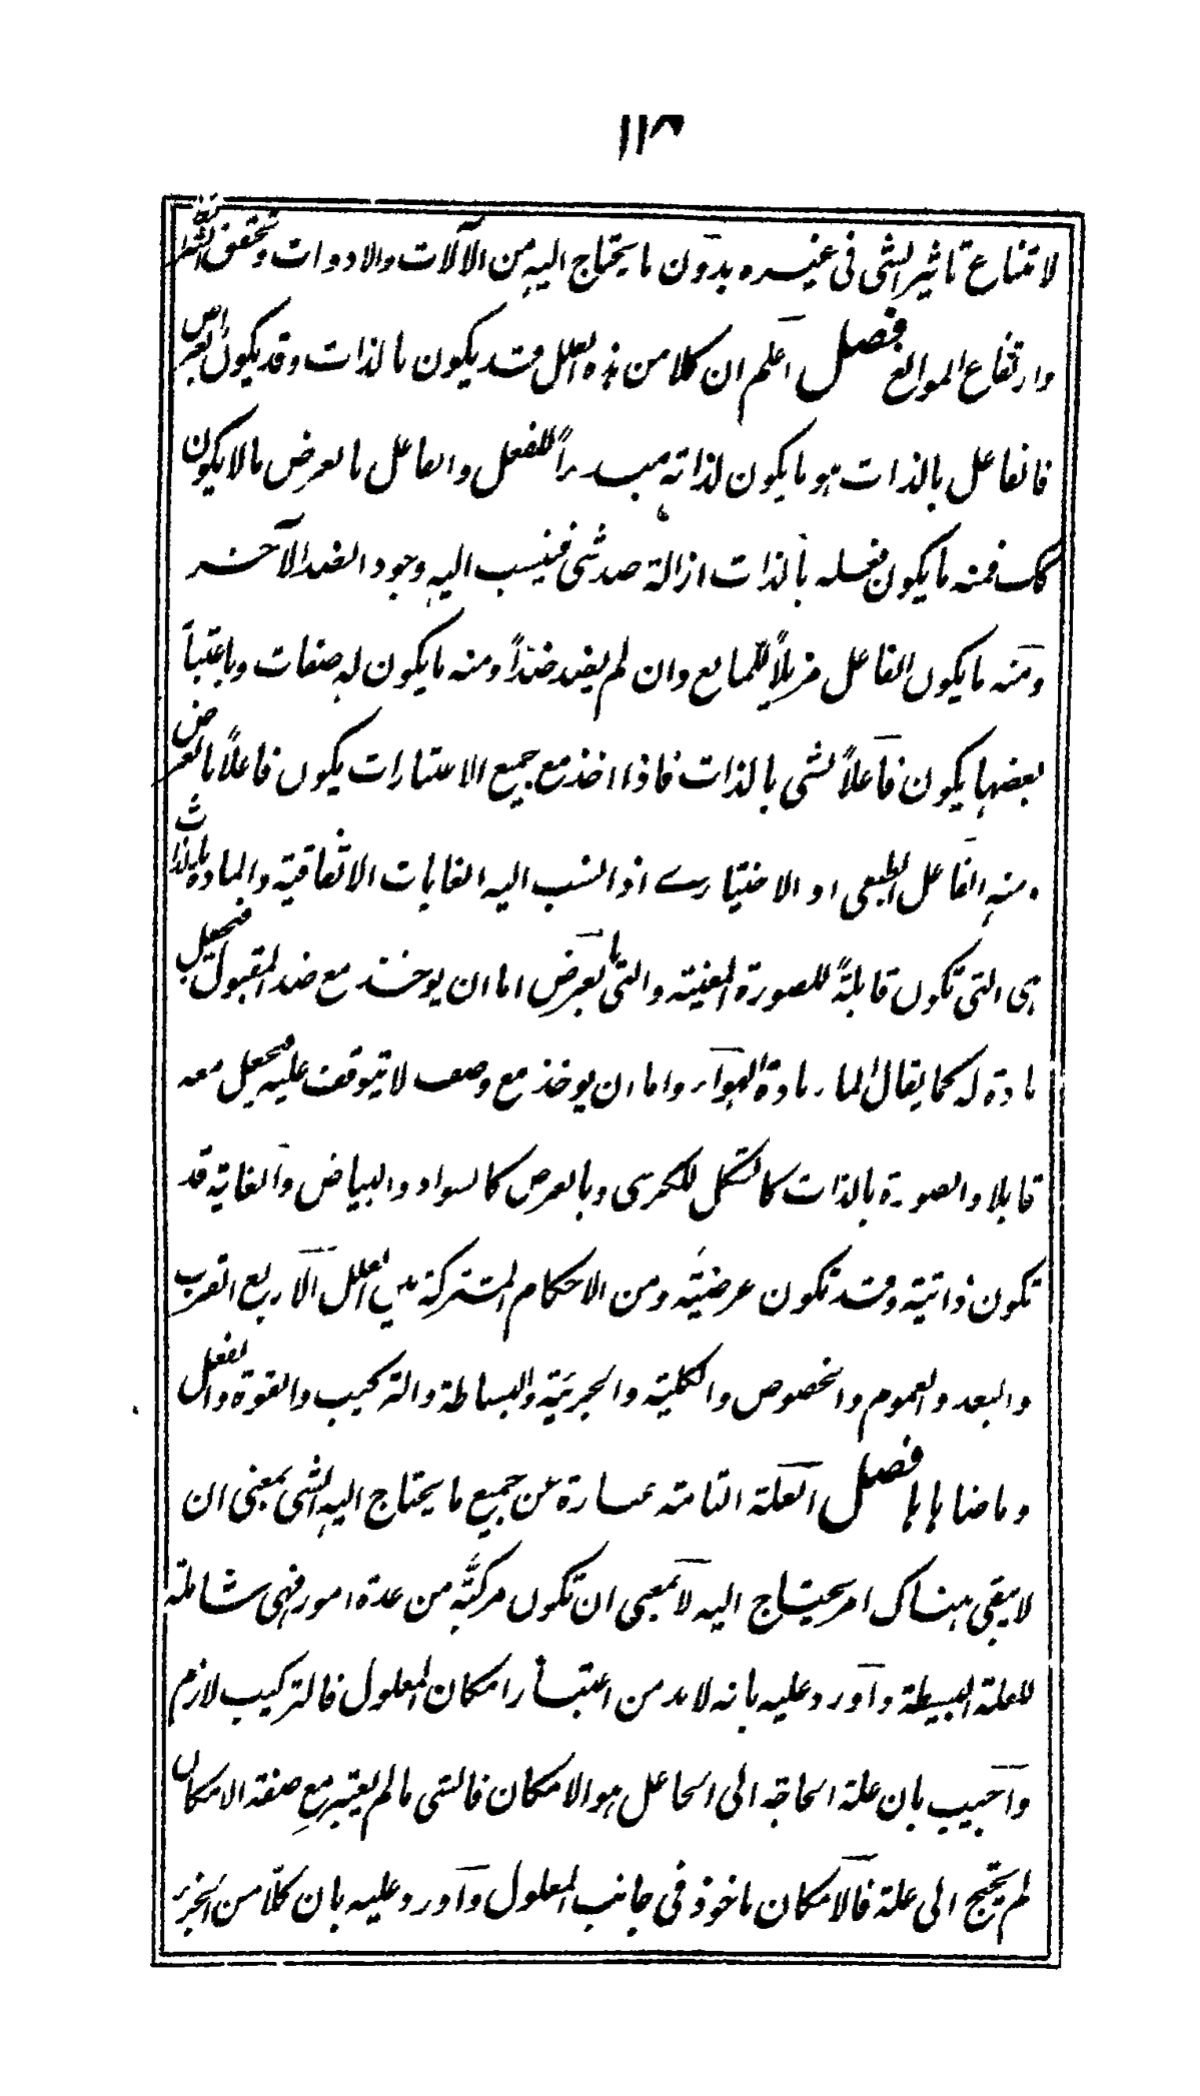 ١١٨
لامتناع تاثير الشی فی غيره بدون ما يحتاج اليه من الآلات والادوات وتحقق الشرائط
وارتفاع الموانع فصل اعلم ان كلا من هذه العلل قد يكون بالذات وقد يكون بالعرض
فالفاعل بالذات هو ما يكون لذاته مبدءاً للفعل والفاعل بالعرض ما لا يكون
كك فمنه ما يكون فعله بالذات ازالة ضد شی فينسب اليه وجود الضد الآخر
ومنه ما يكون الفاعل مزيلاً للمانع وان لم يفد ضداً ومنه ما يكون له صفات وباعتبار
بعضها يكون فاعلاً لشی بالذات فاذا اخذ مع جميع الاعتبارات يكون فاعلاً بالعرض
ومنه الفاعل الطبعی او الاختياری اذا نسب اليه الغايات الاتفاقية والمادة بالذات
هی التی تكون قابلةً للصورة المعينة والتی بالعرض اما ان يوخذ مع ضد المقبول فيجعل
مادة له كما يقال الماء مادة الهواء واما ان يوخذ مع وصف لا يتوقف عليه فيجعل معه
قابلا والصورة بالذات كالشكل للكرسی وبالعرض كالسواد والبياض والغاية قد
تكون ذاتية وقد تكون عرضية ومن الاحكام المشتركة بين العلل الاربع القرب
والبعد والعموم والخصوص والكلية والجزئية والبساطة والتركيب والقوة والفعل
وما ضاهاها فصل العلة التامة عبارة عن جميع ما يحتاج اليه الشی بمعنی ان
لا يبقی هناك امر يحتاج اليه لا بمعنی ان تكون مركبة من عدة امور فهی شاملة
للعلة البسيطة واورد عليه بانه لا بد من اعتبار امكان المعلول فالتركيب لازم
واجيب بان علة الحاجة الی الجاعل هو الامكان فالشی ما لم يعتبر مع صفة الامكان
لم يحتج الی علة فالامكان ماخوذ فی جانب المعلول واورد عليه بان كلا من الجزء